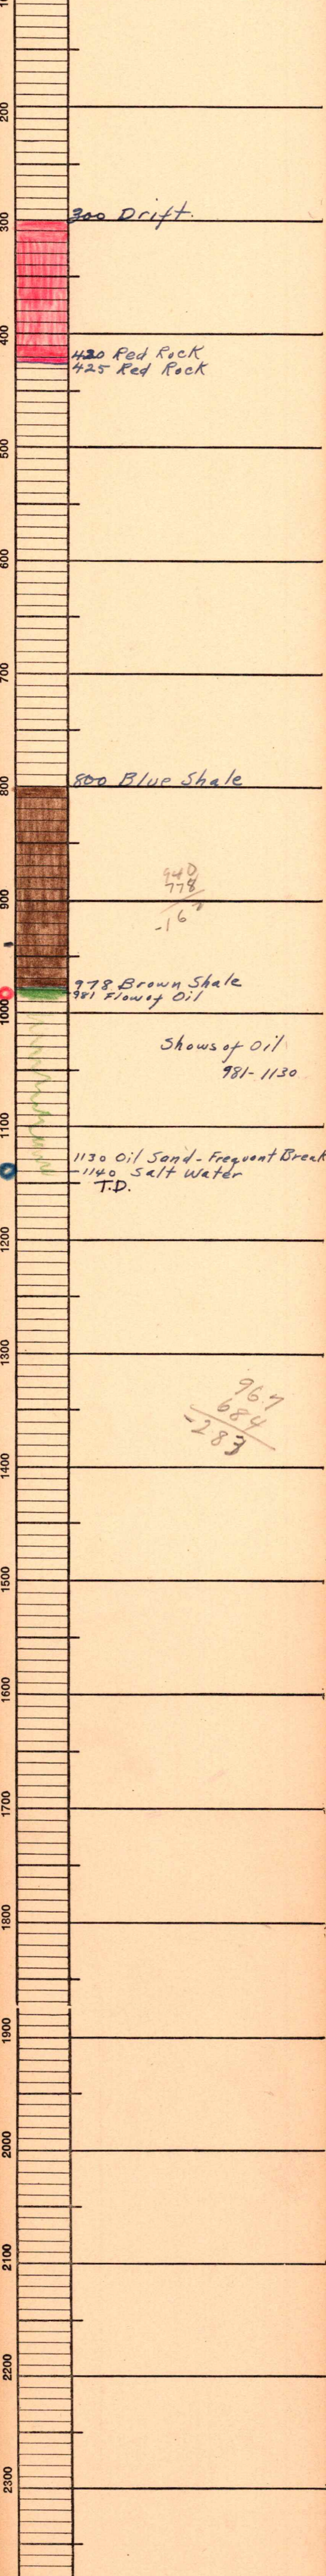 200
300
300 Drift.
400
420 Red Rock
425 Red Rock
500
600
700
800
800 Blue Shale
940
778
-162
900
978 Brown Shale
981 Flow of Oil
1000
Shows of Oil
981-1130
1100
1130 Oil Sand - Frequent Break
-1140 Salt Water
T.D.
1200
1300
967
684
-283
1400
1500
1600
1700
1800
1900
2000
2100
2200
2300